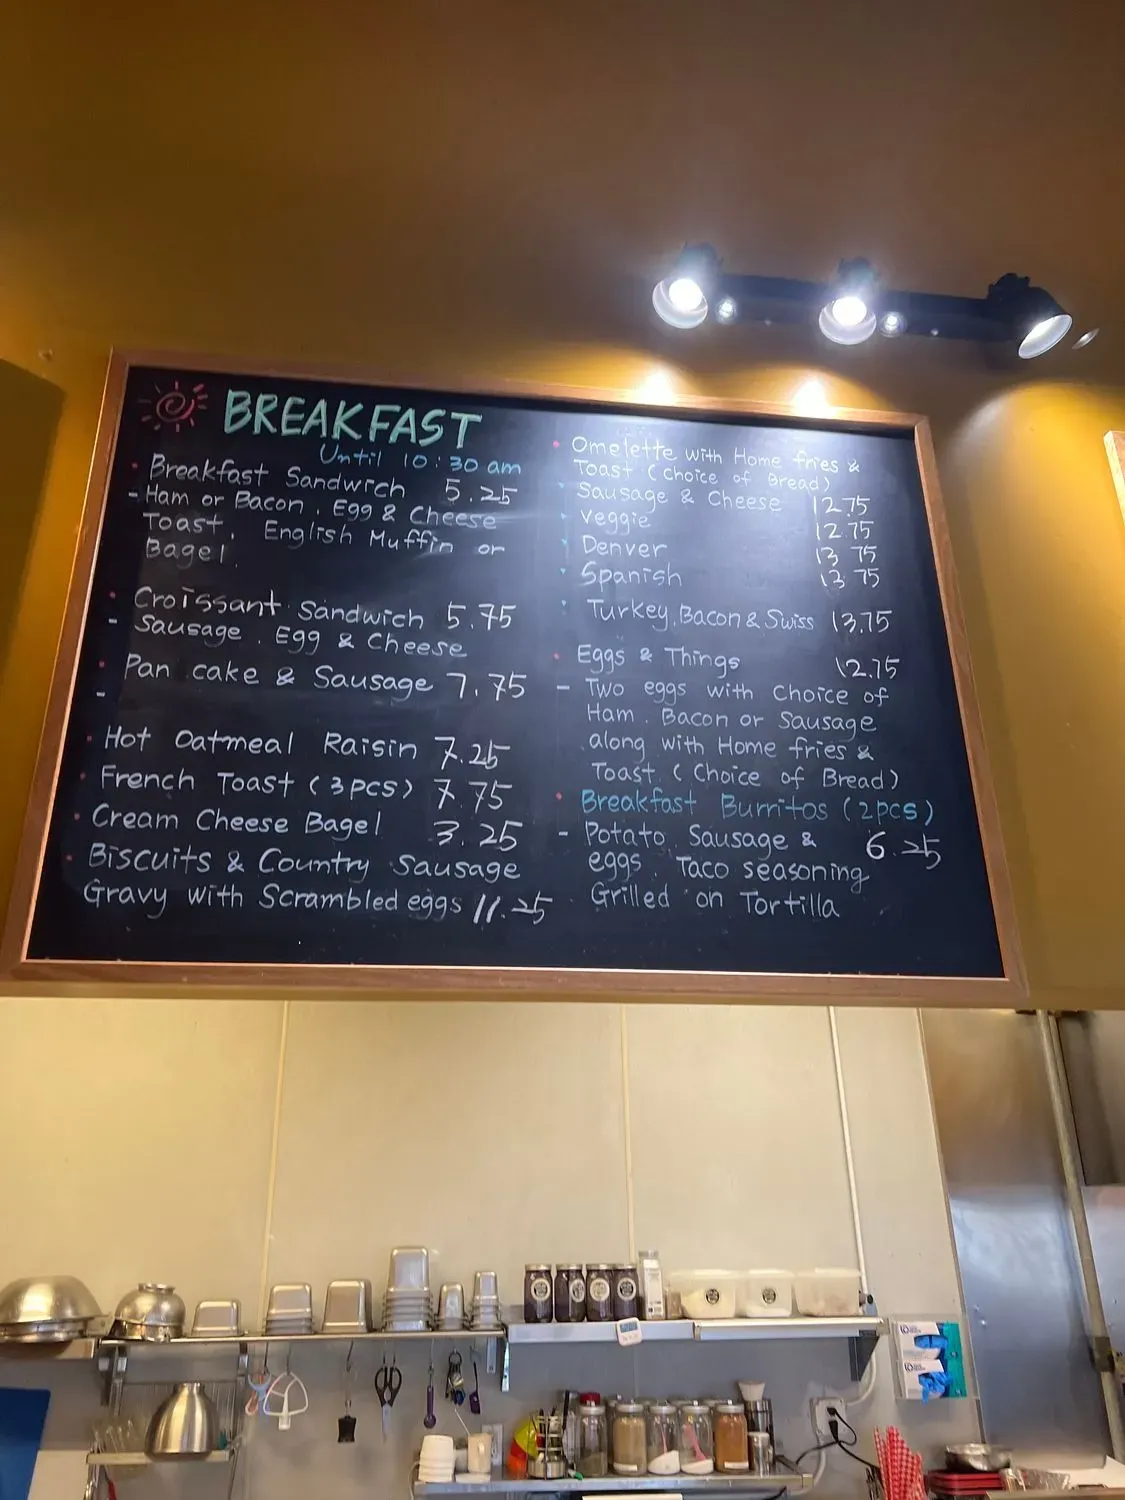 BREAKFAST
Until 10:30 am
• Breakfast Sandwich 5.25
- Ham or Bacon. Egg & Cheese
Toast, English Muffin or
Bagel.
• Croissant Sandwich 5.75
- Sausage. Egg & Cheese
• Pan cake & Sausage 7.75
-
• Hot Oatmeal Raisin 7.25
• French Toast (3pcs) 7.75
• Cream Cheese Bagel 3.25
• Biscuits & Country Sausage
Gravy with Scrambled eggs 11.25
• Omelette with Home fries &
Toast (Choice of Bread)
Sausage & Cheese 12.75
Veggie 12.75
Denver 13.75
Spanish 13.75
Turkey, Bacon & Swiss 13.75
• Eggs & Things 12.75
- Two eggs with Choice of
Ham. Bacon or Sausage
along with Home fries &
Toast (Choice of Bread)
• Breakfast Burritos (2pcs)
- Potato, Sausage & 6.25
eggs. Taco seasoning
Grilled on Tortilla